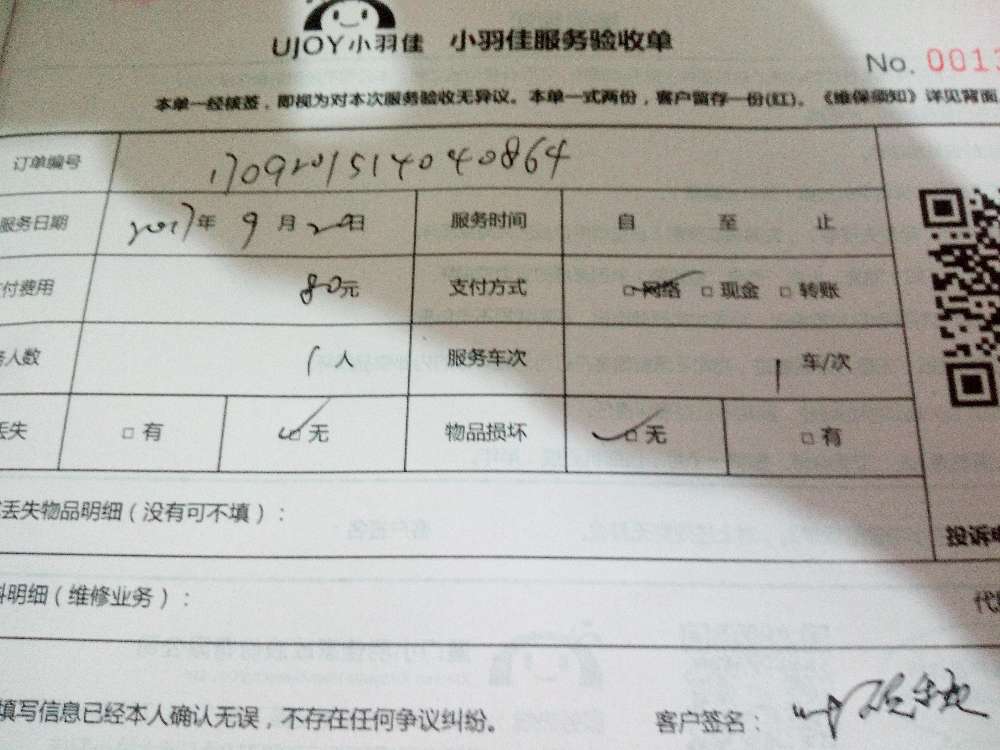 UJOY小羽佳 小羽佳服务验收单
No. 0013
本单一经核签，即视为对本次服务验收无异议。本单一式两份，客户留存一份(红)。《维保须知》详见背面
订单编号 170920151404086​4
服务日期 2017年 9月 20日 服务时间 自 至 止
付费用 80元 支付方式 □网络 □现金 □转账
人数 1人 服务车次 1 车/次
丢失 □有 □无 物品损坏 □无 □有
丢失物品明细（没有可不填）：
投诉
料明细（维修业务）：
填写信息已经本人确认无误，不存在任何争议纠纷。 客户签名：